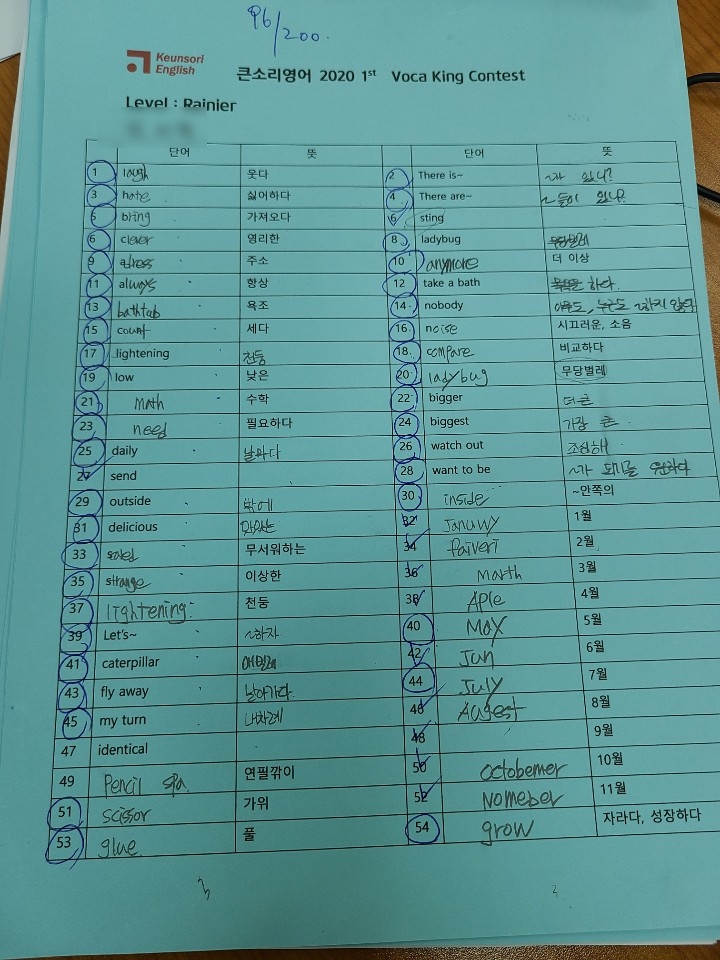 96/200.
Keunsori
English
큰소리영어 2020 1st Voca King Contest
Level : Rainier
단어 뜻 단어 뜻
1 laugh 웃다 2 There is~ ~가 있니?
3 hate 싫어하다 4 There are~ ~들이 있니?
5 bring 가져오다 6 sting
6 clever 영리한 8 ladybug
9 adress 주소 10 anymore 더 이상
11 always 항상 12 take a bath 하다.
13 bathtab 욕조 14 nobody 아무도, 누구도 ~하지 않다
15 count 세다 16 noise 시끄러운, 소음
17 lightening 천둥 18 compare 비교하다
19 low 낮은 20 ladybug 무당벌레
21 math 수학 22 bigger 더 큰
23 need 필요하다 24 biggest 가장 큰
25 daily 날마다 26 watch out 조심해
27 send 28 want to be ~가 되기를 원하다
29 outside 밖에 30 inside ~안쪽의
31 delicious 맛있는 32 Januwy 1월
33 무서워하는 34 faiveri 2월
35 strange 이상한 36 Marth 3월
37 lightening 천둥 38 Aple 4월
39 Let's~ ~하자 40 May 5월
41 caterpillar 애벌레 42 Jun 6월
43 fly away 날아가다. 44 July 7월
45 my turn 내차례 46 Augest 8월
47 identical 48 9월
49 Pencil spa. 연필깎이 50 octobemer 10월
51 scissor 가위 52 Nomeber 11월
53 glue 풀 54 grow 자라다, 성장하다